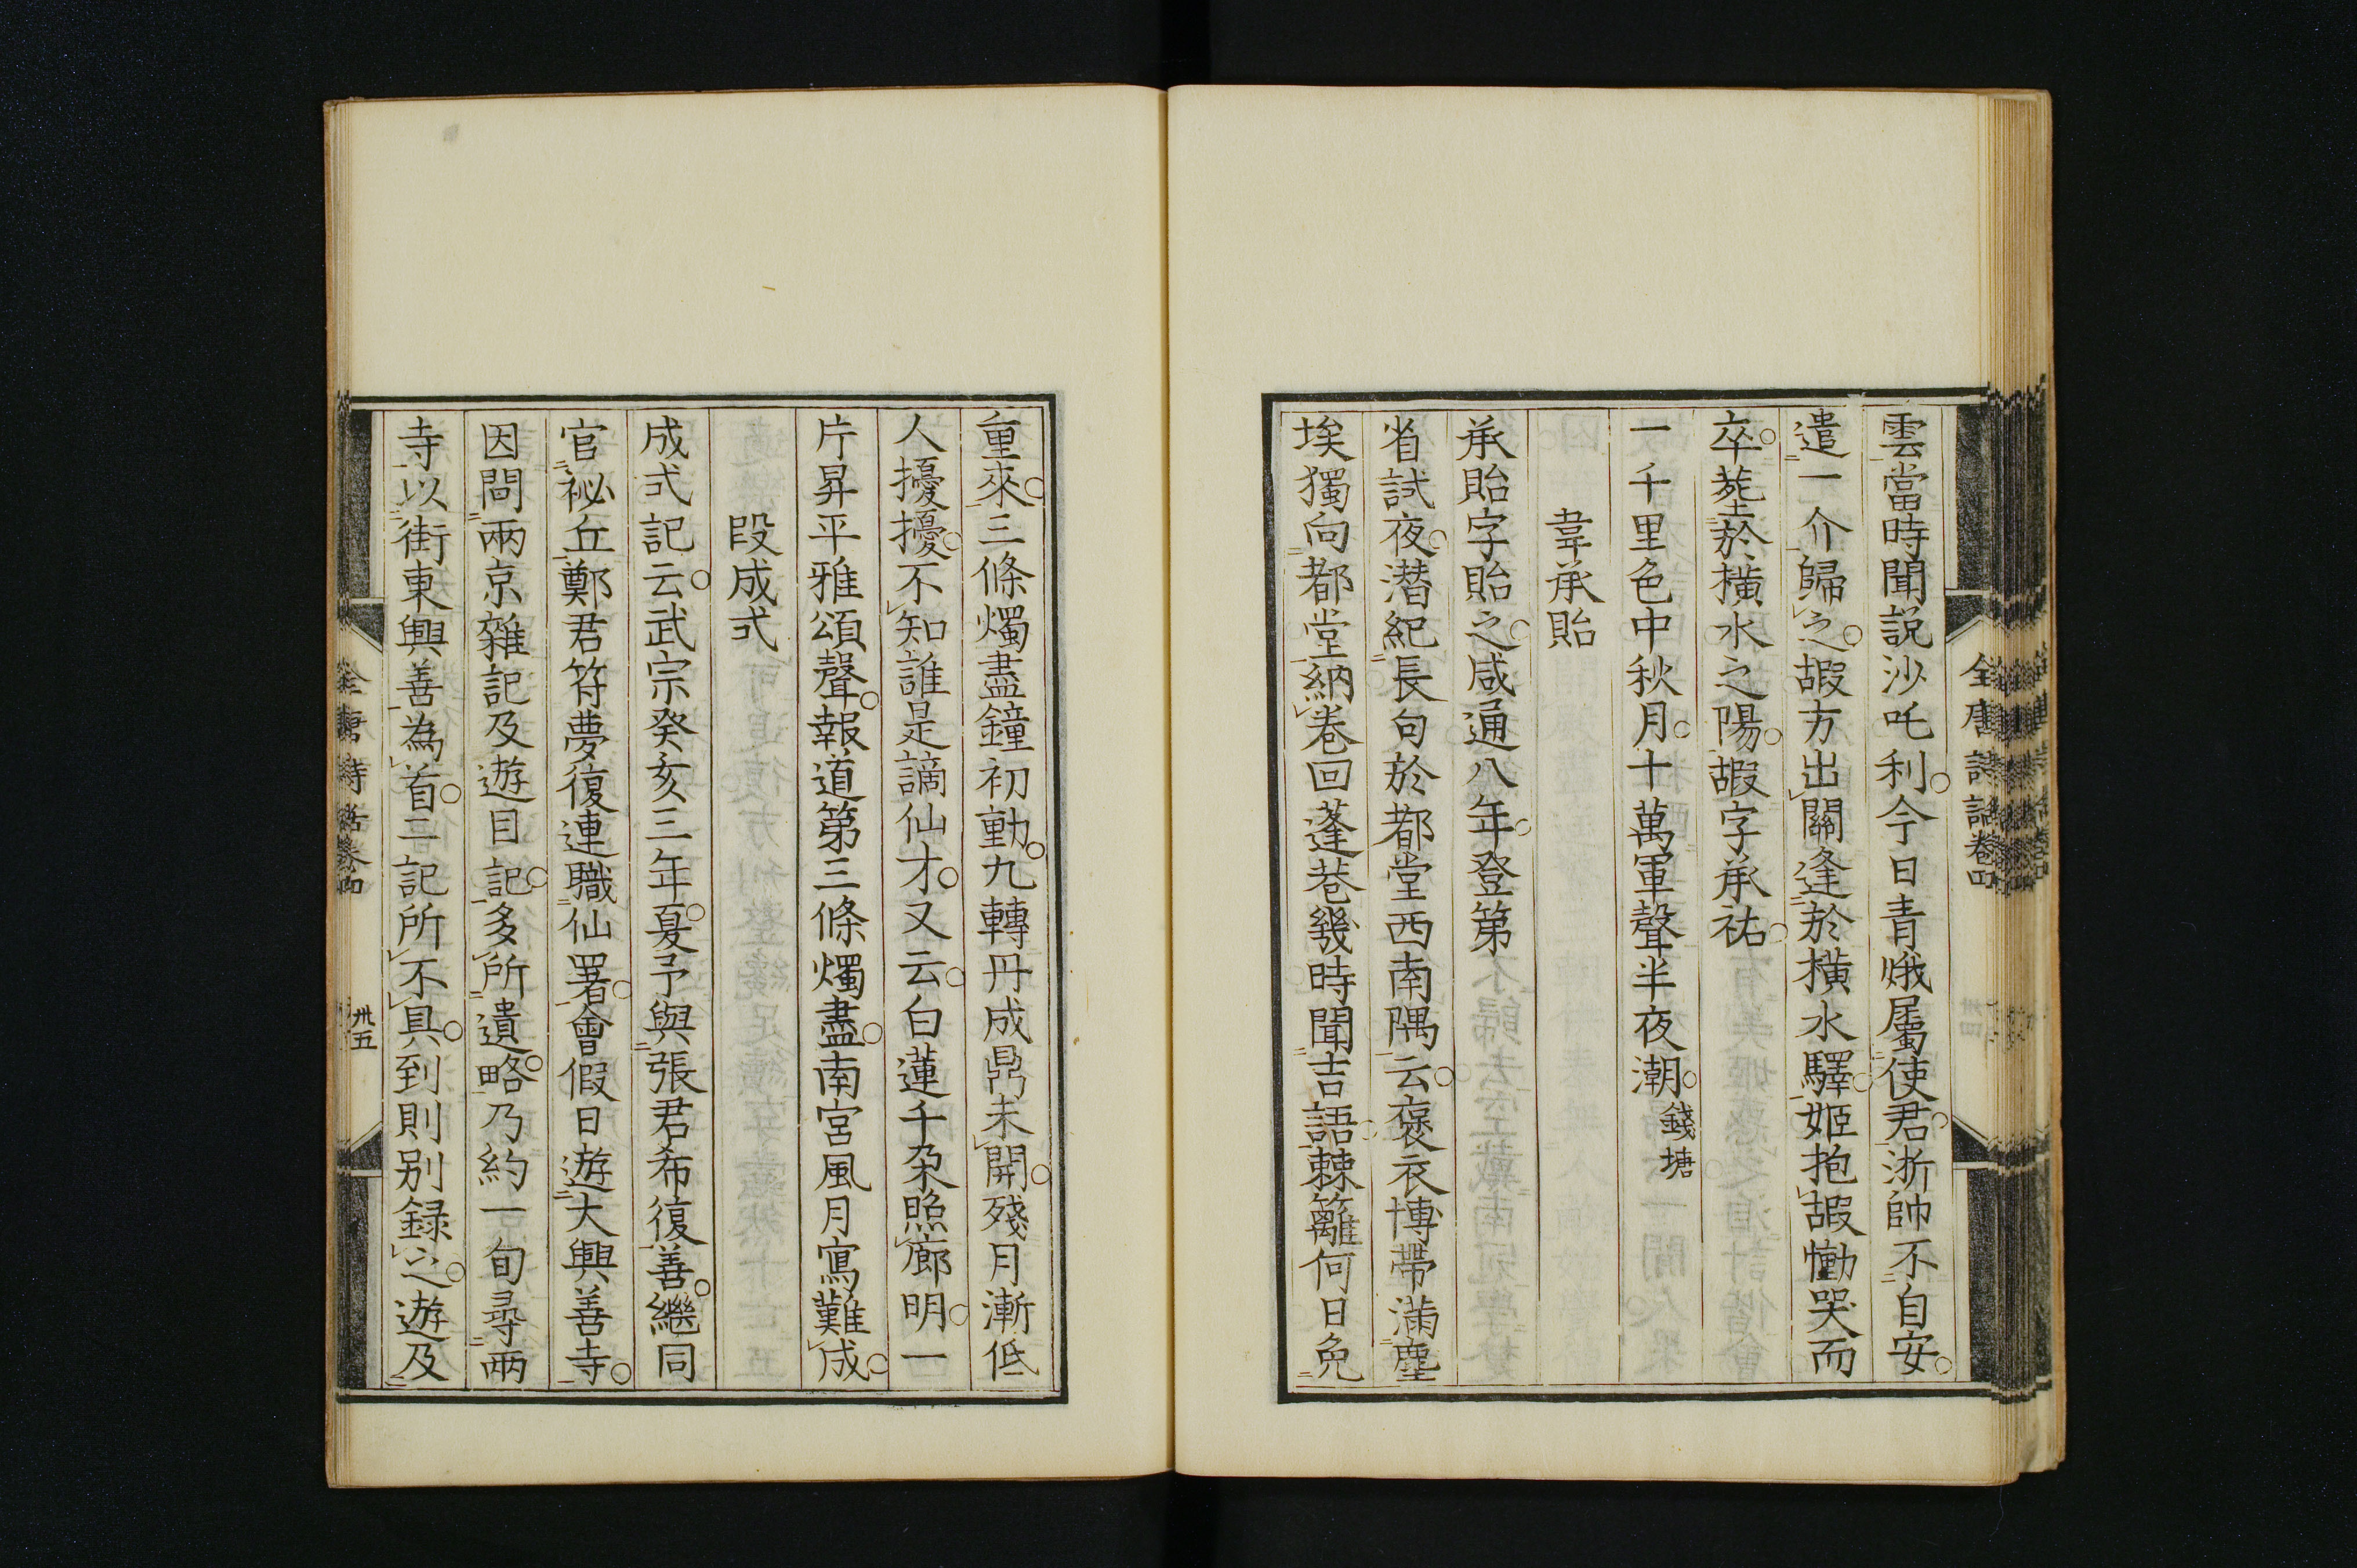 全唐詩話卷四
雲當時聞説沙吒利今日青娥屬使君浙帥不自安
遣一介歸之嘏方出關逢於橫水驛姬抱嘏慟哭而
卒塟於橫水之陽嘏字承祐
一千里色中秋月十萬軍聲半夜潮錢塘
韋承貽
承貽字貽之咸通八年登第
省試夜潛紀長句於都堂西南隅云褒衣博帶滿塵
埃獨向都堂納卷回蓬巷幾時聞吉語棘籬何日免
重來三條燭盡鐘初動九轉丹成鼎未開殘月漸低
人擾擾不知誰是謫仙才又云白蓮千朶照廊明一
片昇平雅頌聲報道第三條燭盡南宮風月寫難成
段成式
成式記云武宗癸亥三年夏予與張君希復善繼同
官祕丘鄭君符夢復連職仙署會假日遊大興善寺
因問兩京雜記及遊目記多所遺略乃約一旬尋兩
寺以街東興善為首二記所不具到則別録之遊及
全唐詩話卷四
卅五